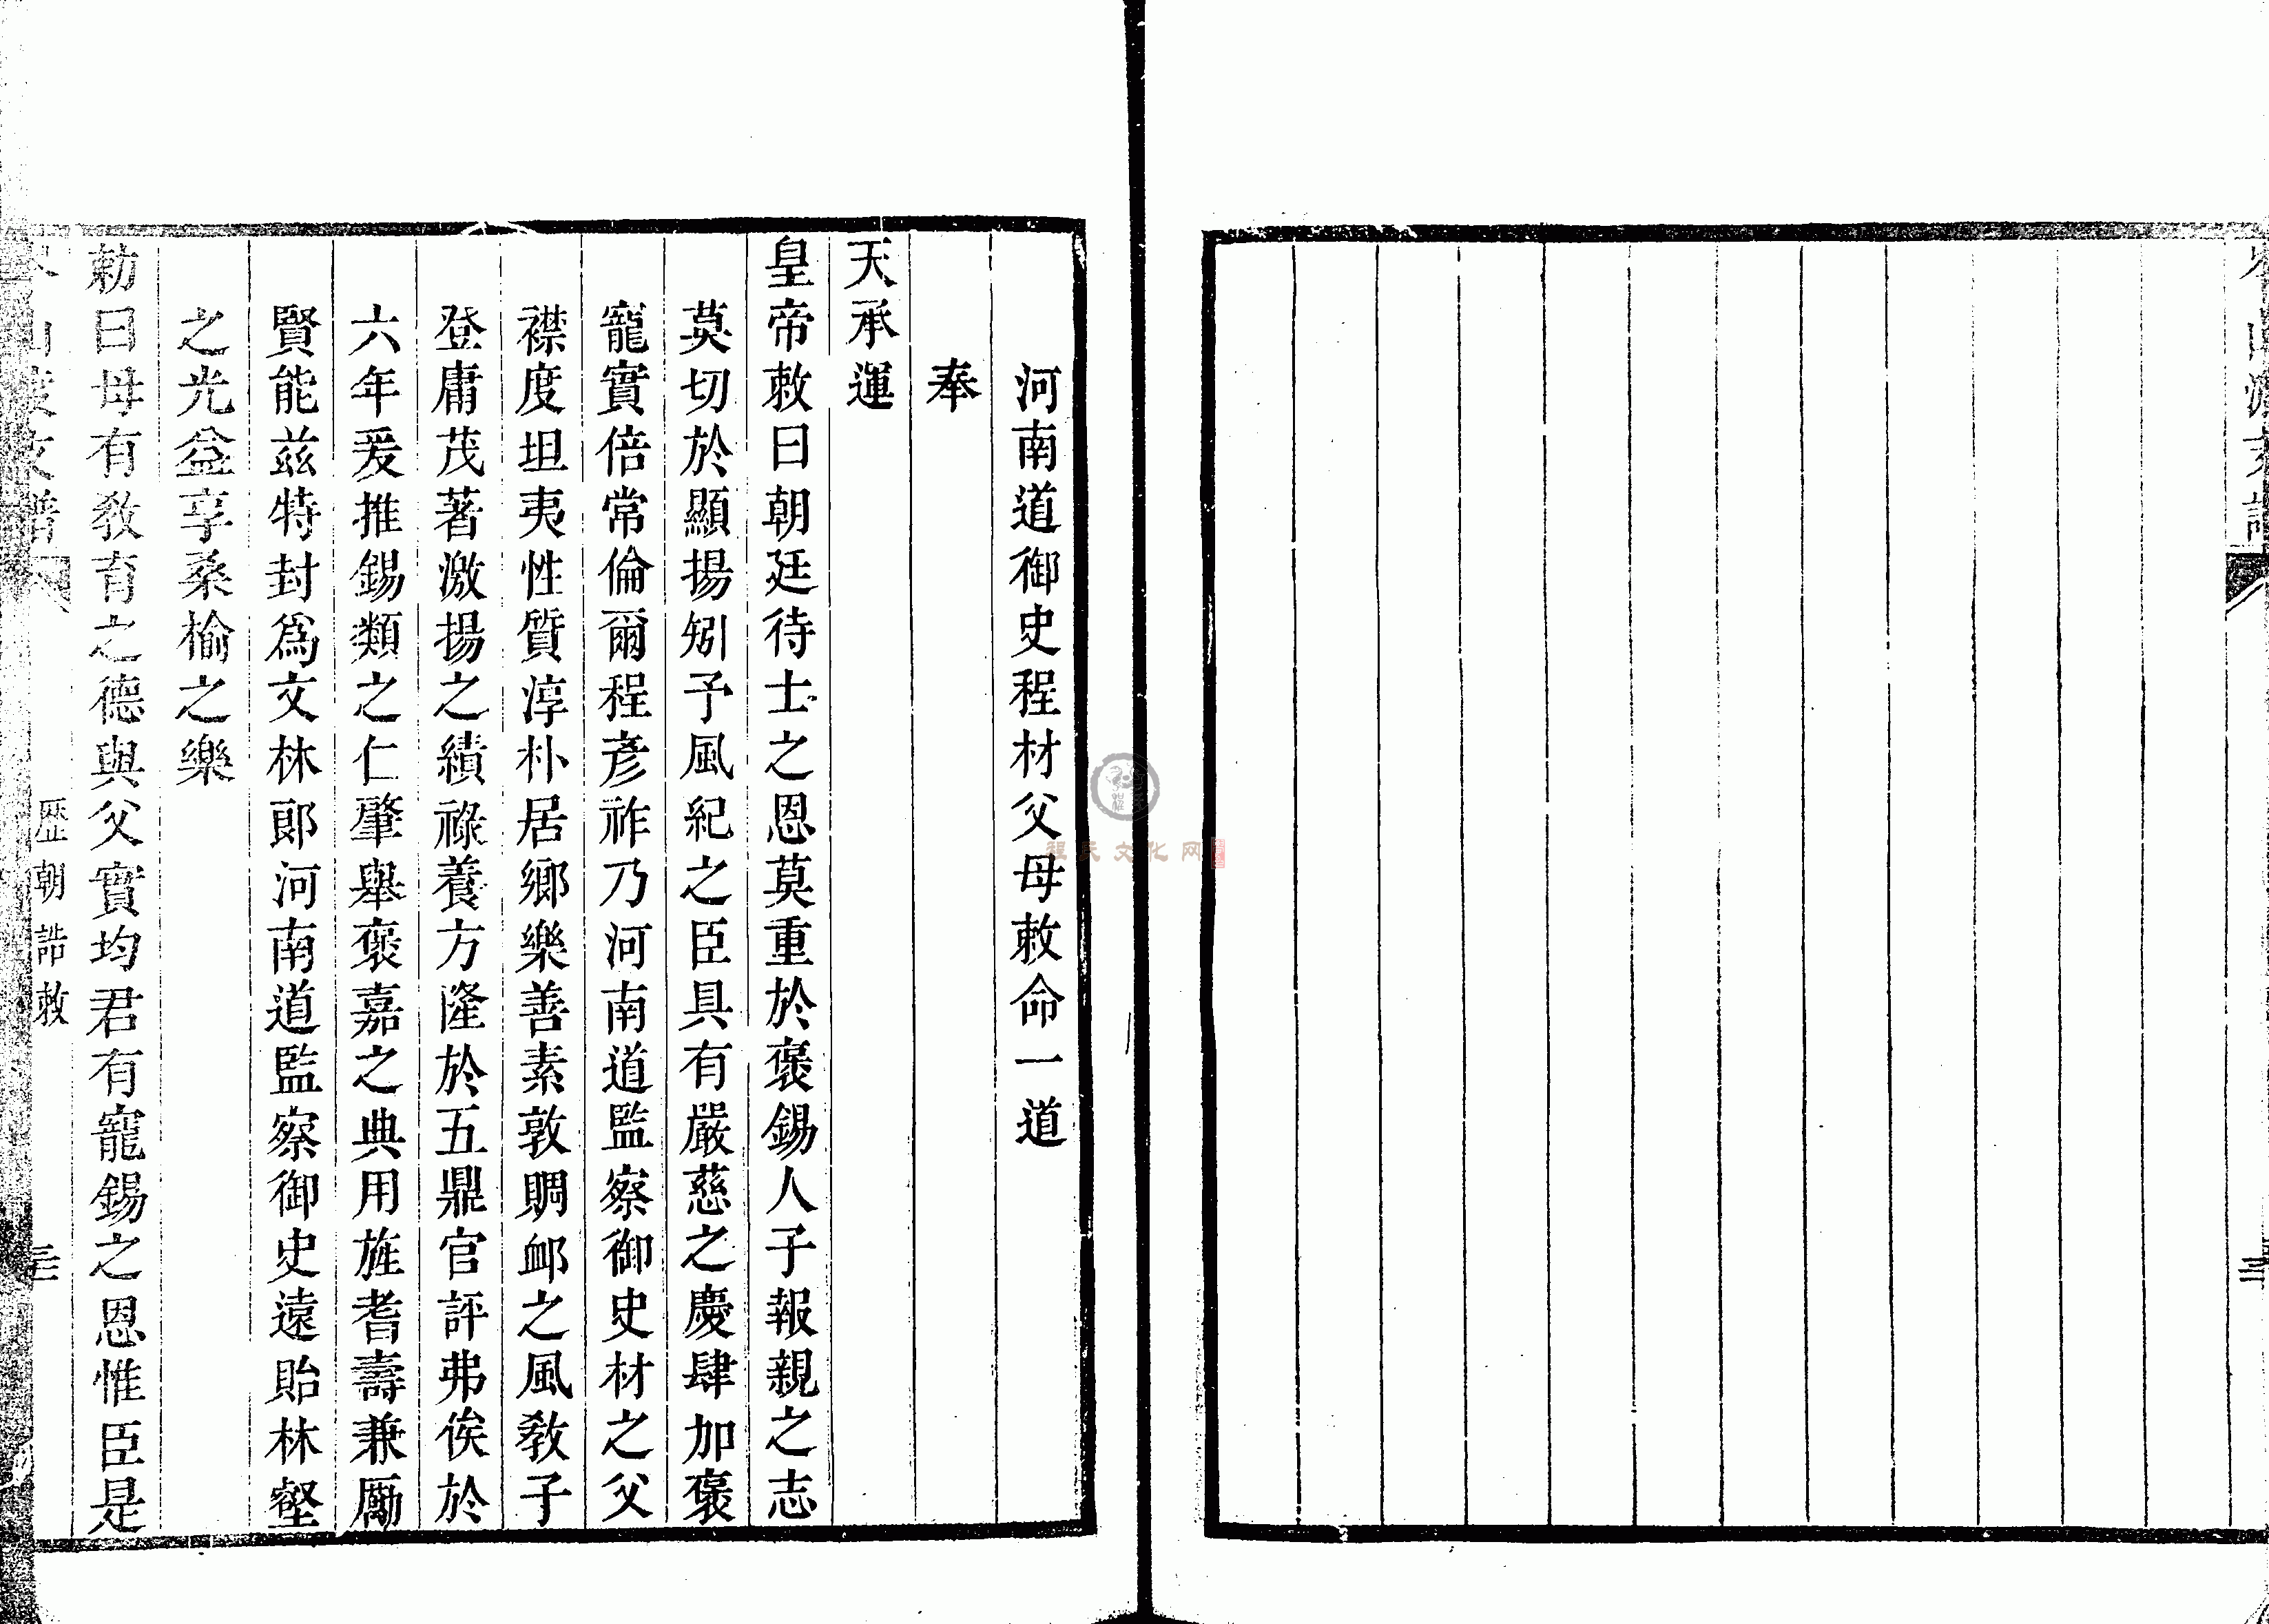 河南道御史程材父母敕命一道
奉
天承運
皇帝敕曰朝廷待士之恩莫重於褒錫人子報親之志
莫切於顯揚矧予風紀之臣具有嚴慈之慶肆加褒
寵實倍常倫爾程彦祚乃河南道監察御史材之父
襟度坦夷性質淳朴居鄉樂善素敦賙卹之風敎子
登庸茂著激揚之績祿養方隆於五鼎官評弗俟於
六年爰推錫類之仁肇舉褒嘉之典用旌耆壽兼厲
賢能兹特封爲文林郎河南道監察御史遠貽林壑
之光益享桑榆之樂
勅曰母有敎育之德與父實均君有寵錫之恩惟臣是
歷朝誥敕
程氏文化网